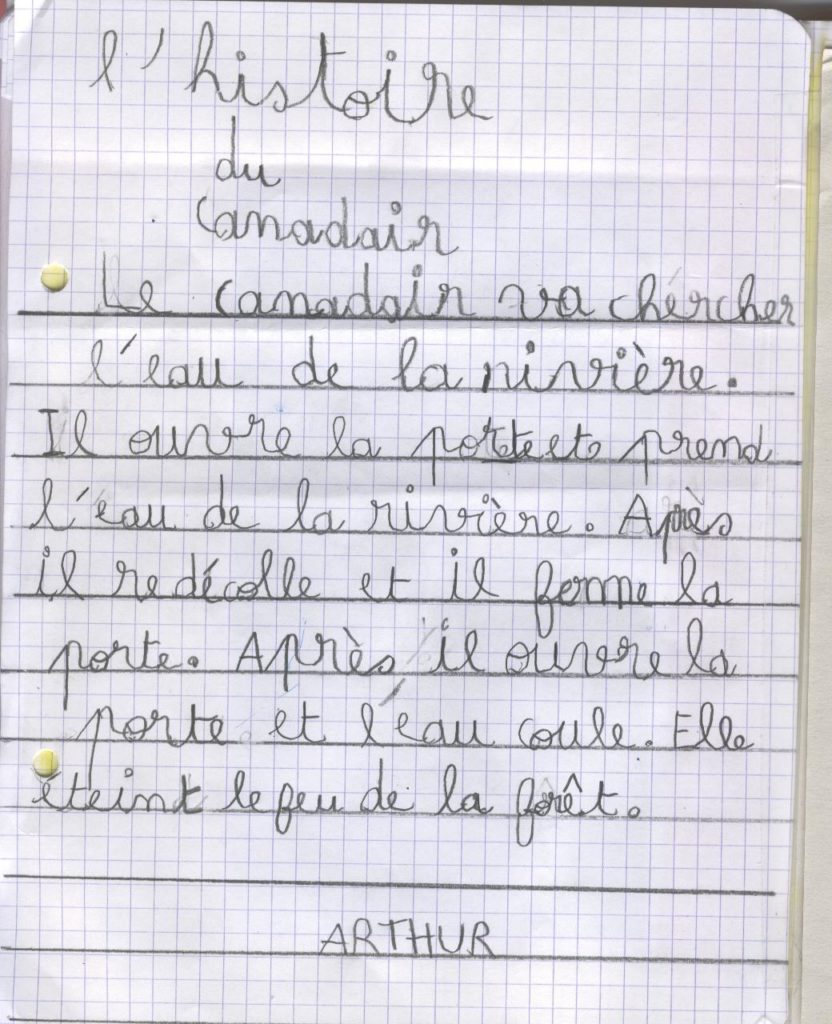 l'histoire
du
Canadair
Le Canadair va chercher
l'eau de la rivière.
Il ouvre la porte et prend
l'eau de la rivière. Après
il redécolle et il ferme la
porte. Après il ouvre la
porte et l'eau coule. Elle
éteint le feu de la forêt.
ARTHUR